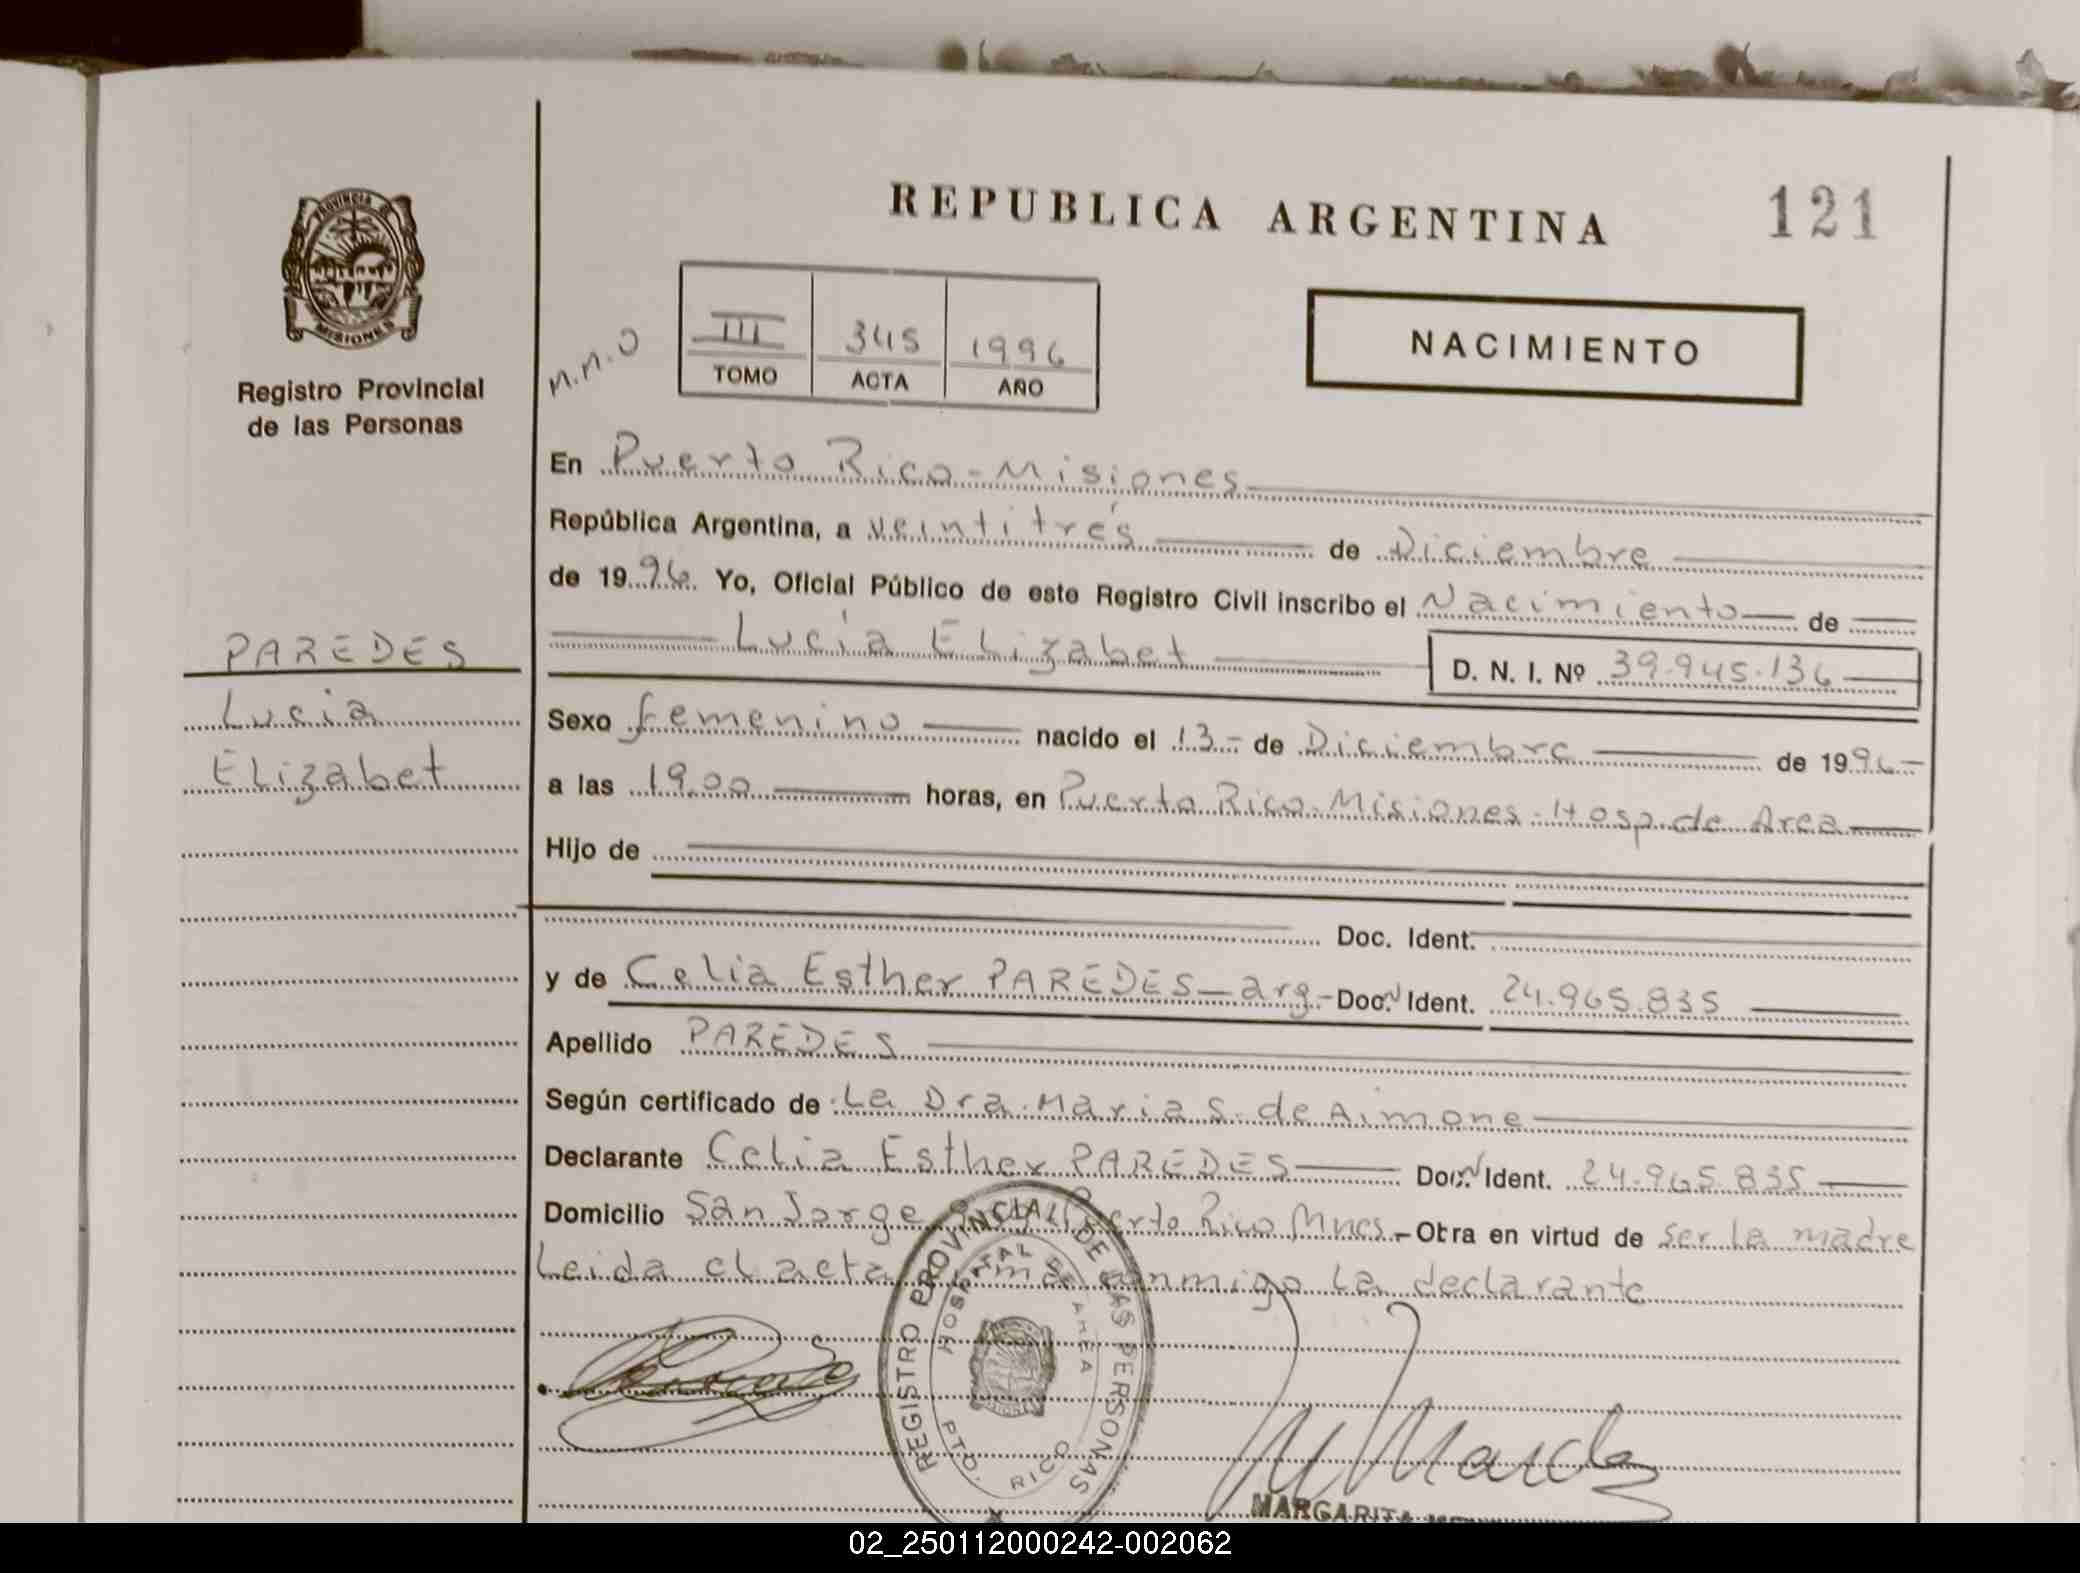 REPUBLICA ARGENTINA
121
PROVINCIA DE
MISIONES
Registro Provincial
de las Personas
M.M.O
III 345 1996
TOMO ACTA AÑO
NACIMIENTO
En Puerto Rico - Misiones
República Argentina, a veintitrés de Diciembre
de 1996. Yo, Oficial Público de este Registro Civil inscribo el Nacimiento de
Lucía Elizabet D. N. I. Nº 39.945.136
PAREDES
Lucia
Elizabet
Sexo femenino nacido el 13- de Diciembre de 1996-
a las 19,00 horas, en Puerto Rico-Misiones-Hosp.de Area
Hijo de
Doc. Ident.
y de Celia Esther PAREDES-arg- Doc. Ident. 24.965.835
Apellido PAREDES
Según certificado de La Dra. Maria S. de Aimone
Declarante Celia Esther PAREDES Doc. Ident. 24.965.835
Domicilio San Jorge Puerto Rico Mnes- Obra en virtud de ser la madre
Leida el acta conmigo la declarante
REGISTRO PROVINCIAL DE LAS PERSONAS
HOSPITAL DE AREA
PTO. RICO
MISIONES
MARGARITA
02_250112000242-002062